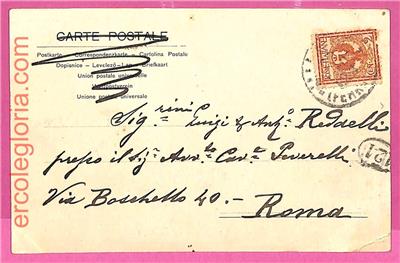 CARTE POSTALE
Postkarte - Correspondenzkarte - Cartolina Postale
Dopisnice - Levelező-Lap - Briefkaart
Union postale universelle
Weltpostverein
Unione postale universale
Sig.rini Luigi & Ant.o Redaelli
presso il Sig. Avv.to Cav.re Peverelli
Via Boschetto 40.-
Roma
ercolegloria.com